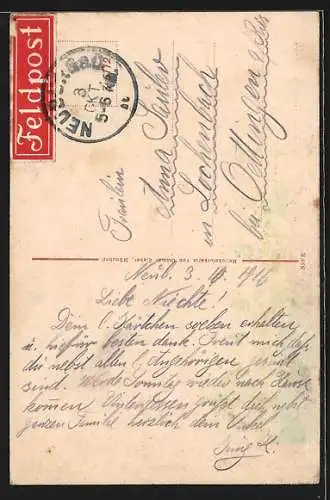 Feldpost
NEUB
3
OKT
5-6 NM.
Fräulein
Anna
in Lochenbach
bei Oettingen
Neub. 3. 10. 1916
Liebe Niechte!
Dein l. Kärtchen soeben erhalten
u. hiefür besten dank. Freut mich daß
du nebst allen l. Angehörigen gesund
sind. Werde Sonntag wieder nach Hause
kommen. Unterdessen grüßt dich nebst
ganzen Familie herzlich dein Onkel